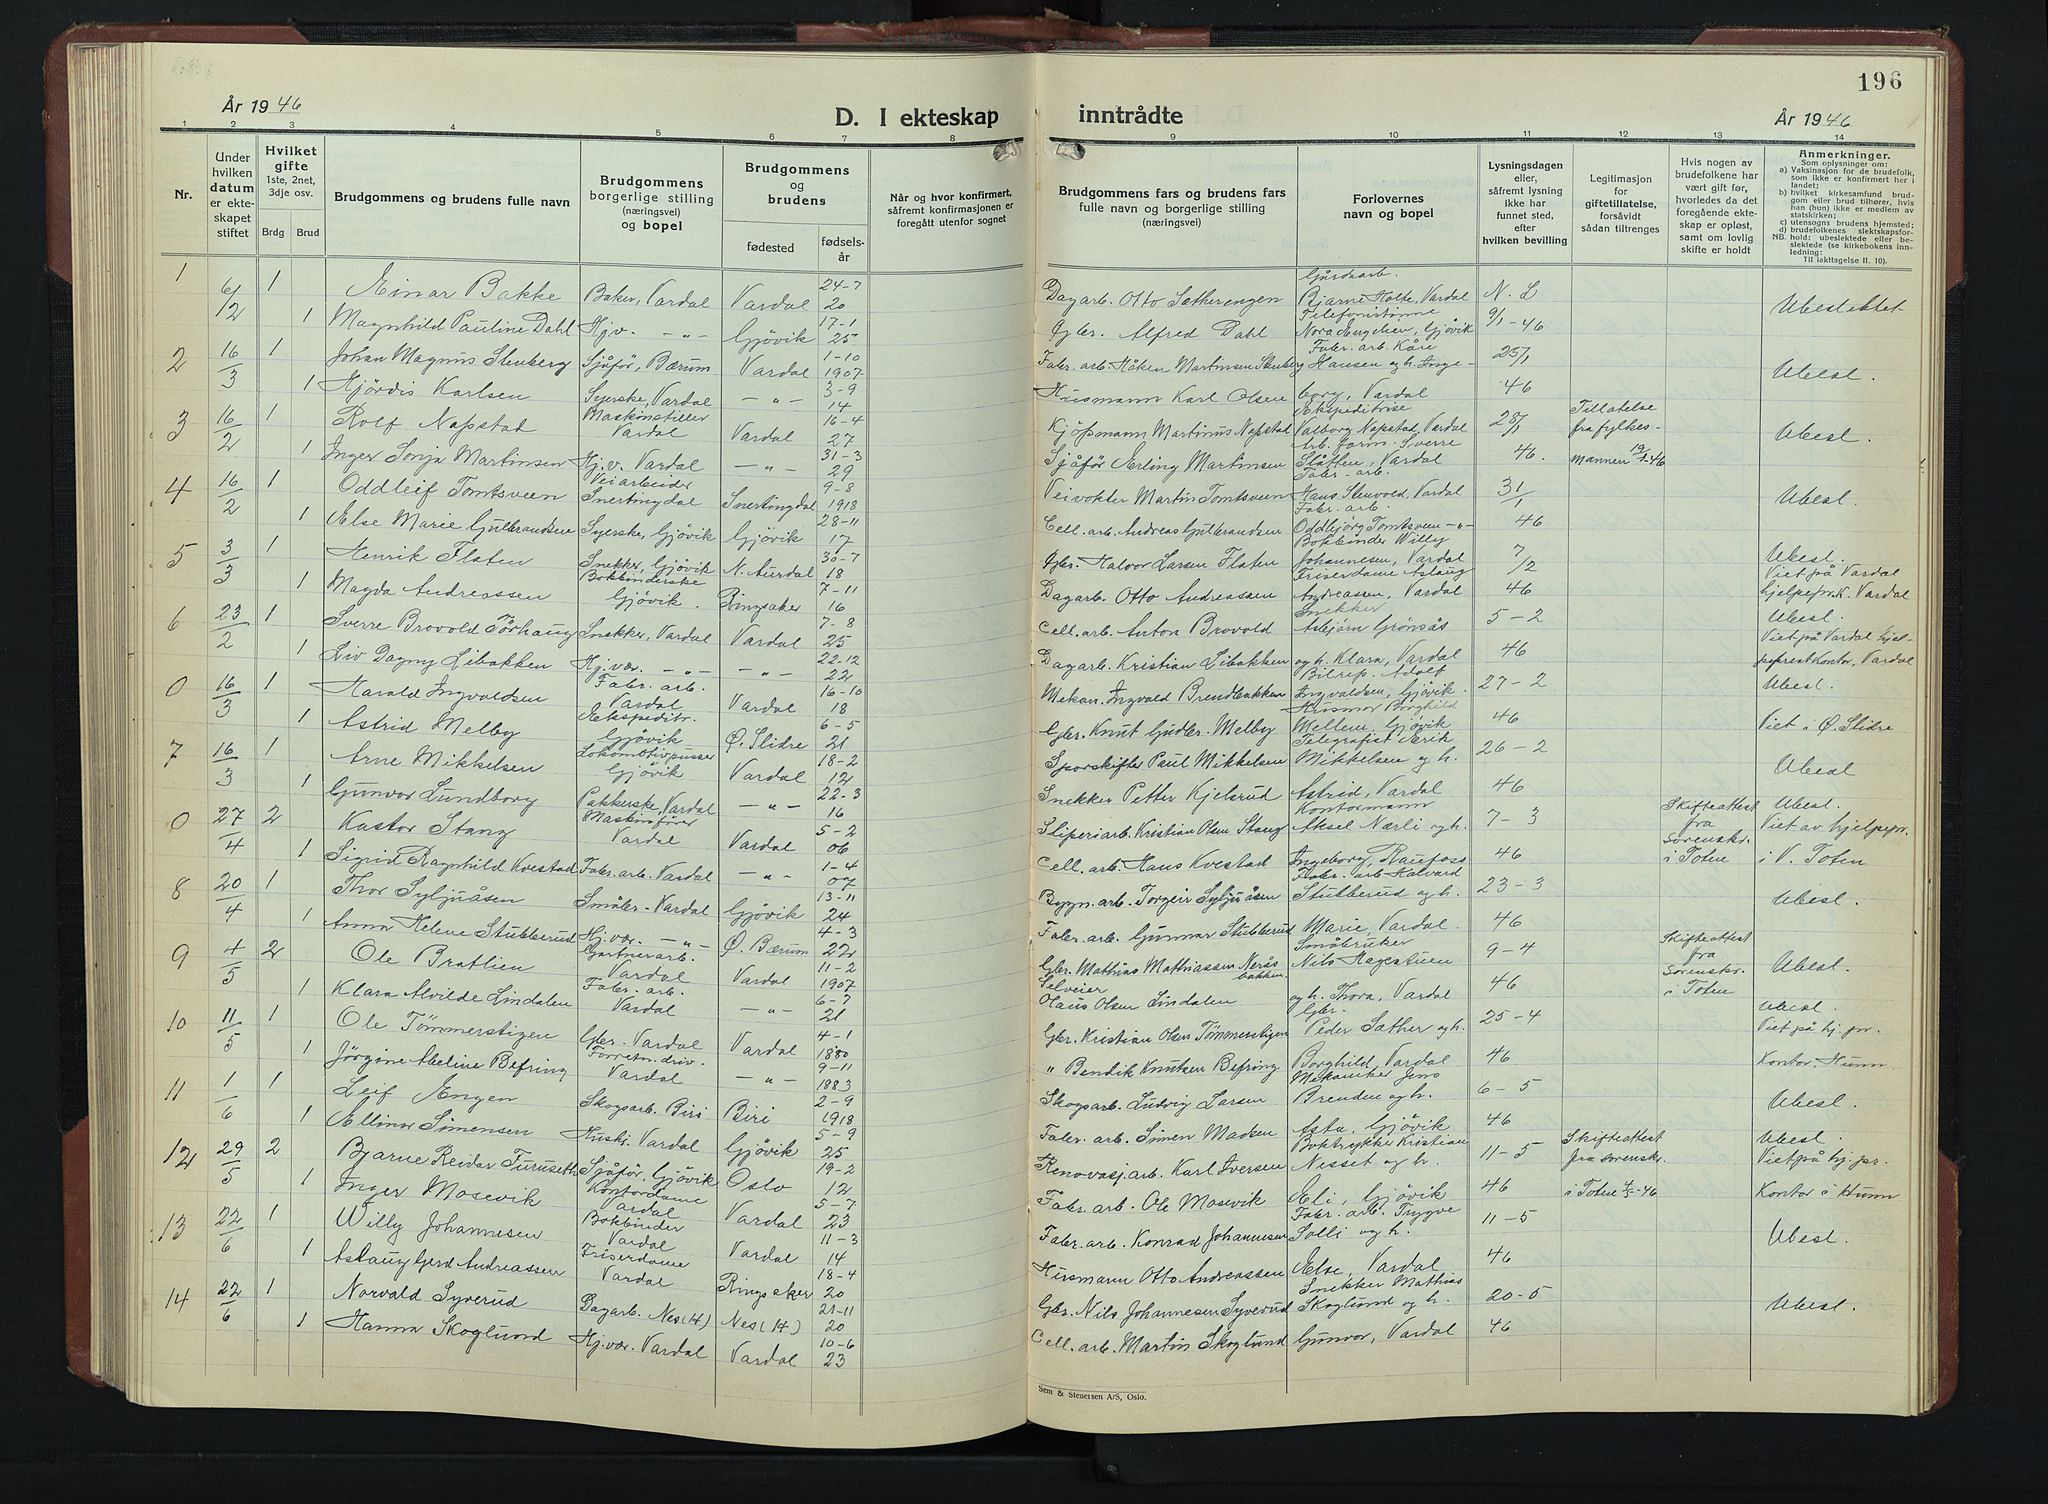 196
År 1946
D. I ekteskap inntrådte
År 1946
1 2 3 4 5 6 7 8 9 10 11 12 13 14
Nr.
Under hvilken datum er ekteskapet stiftet
Hvilket gifte 1ste, 2net, 3dje osv.
Brdg Brud
Brudgommens og brudens fulle navn
Brudgommens borgerlige stilling (næringsvei) og bopel
Brudgommens og brudens
fødested
fødselsår
Når og hvor konfirmert, såfremt konfirmasjonen er foregått utenfor sognet
Brudgommens fars og brudens fars fulle navn og borgerlige stilling (næringsvei)
Forlovernes navn og bopel
Lysningsdagen eller, såfremt lysning ikke har funnet sted, efter hvilken bevilling
Legitimasjon for giftetillatelse, forsåvidt sådan tiltrenges
Hvis nogen av brudefolkene har vært gift før, hvorledes da det foregående ekteskap er opløst, samt om lovlig skifte er holdt
Anmerkninger.
Som oplysninger om:
a) Vaksinasjon for de brudefolk, som ikke er konfirmert her i landet;
b) hvilket kirkesamfund brudgom eller brud tilhører, hvis han (hun) ikke er medlem av statskirken;
c) utensogns brudens hjemsted;
d) brudefolkenes slektskapsforhold: ubeslektede eller beslektede (se kirkebokens innledning:
NB. Til iakttagelse II. 10).
1 6/2 1 Einar Bakke Baker, Vardal Vardal 24-7 20 Dagarb. Otto Sætherengen Gårdsarb. Bjarne Holte, Vardal N. L Ubeslektet
1 Magnhild Pauline Dahl Hj.v. -"- Gjövik 17-1 25 Gbr. Alfred Dahl Telefonistinne Nora Engelien, Gjövik 9/1-46
2 16/3 1 Johan Magnus Stenberg Sjåför, Bærum Vardal 1-10 1907 Fabr. arb. Håken Martinsen Stenberg Fabr. arb. Kåre Hansen og h. Inge- 25/1 Ubesl.
1 Hjördis Karlsen Syerske, Vardal -"- 3-9 14 Husmann Karl Olsen borg, Vardal 46
3 16/2 1 Rolf Napstad Maskinstiller Vardal Vardal 16-4 27 Kjöpmann Martinus Napstad Ekspeditrise Valborg Napstad, Vardal 28/1 Tillatelse fra fylkes- Ubesl.
1 Inger Sonja Martinsen Hj.v. Vardal -"- 31-3 29 Sjåför Erling Martinsen Arb. form. Sverre Slåtten, Vardal 46. mannen 19/2-46
4 16/2 1 Oddleif Tomtsveen Veiarbeider Snertingdal Snertingdal 9-8 1918 Veivokter Martin Tomtsveen Fabr. arb. Hans Stenvold, Vardal 31/1 Ubesl.
1 Else Marie Gulbrandsen Syerske, Gjövik Gjövik 28-11 17 Cell. arb. Andreas Gulbrandsen Fabr. arb. Oddbjörg Tomtsveen -"- 46
5 3/3 1 Henrik Flaten Snekker, Gjövik N. Aurdal 30-7 18 Gbr. Halvor Larsen Flaten Bokbinder Willy Johannesen, Vardal 7/2 Ubesl. Viet på Vardal
1 Magda Andreassen Bokbinderske Gjövik. Ringsaker 7-11 16 Dagarb. Otto Andreassen Friserdame Aslaug Andreassen, Vardal 46 hjelpepr.k. Vardal
6 23/2 1 Sverre Brovold Törhaug Snekker, Vardal Vardal 7-8 25 Cell. arb. Anton Brovold Snekker Asbjörn Grönsås 5-2 Ubesl. Viet på Vardal hjel-
1 Liv Dagny Libakken Hj.vær. -"- -"- 22-12 22 Dagarb. Kristian Libakken og h. Klara, Vardal 46 peprestkontor, Vardal
0 16/3 1 Harald Ingvaldsen Fabr. arb. Vardal Vardal 16-10 18 Mekan. Ingvald Brendbakken Bilrep. Adolf Ingvaldsen, Gjövik. 27-2 Ubesl.
1 Astrid Melby Ekspeditr. Gjövik Ø. Slidre 6-5 21 Gbr. Knut Gudbr. Melby Husmor Borghild Mellem, Gjövik 46 Viet i Ø. Slidre
7 16/3 1 Arne Mikkelsen Lokomotivpusser Gjövik Vardal 18-2 12 Sporskifter Paul Mikkelsen Telegrafist Erik Mikkelsen og h. 26-2 Ubesl
1 Gunvor Lundborg Pakkerske, Vardal -"- 22-3 16 Snekker Petter Kjelsrud Astrid, Vardal 46
0 27/4 2 Kastor Stang Maskinförer Vardal Vardal 5-2 06 Sliperiarb. Kristian Olsen Stang Kontormann Aksel Nærli og h. 7-3 Skifteattest fra Ubesl. Viet av hjelpepr.
1 Sigrid Ragnhild Kvestad Fabr. arb. Vardal -"- 1-4 07 Cell. arb. Hans Kvestad Ingeborg, Raufoss 46 sorenskr. i Toten i V. Toten
8 20/4 1 Thor Syljuåsen Småbr. - Vardal Gjövik 13-11 24 Bygn. arb. Torgeir Syljuåsen Fabr. arb. Halvard Stubberud og h. 23-3 Ubesl.
1 Anna Helene Stubberud Hj.vær. -"- Ø. Bærum 4-3 22 Fabr. arb. Gunnar Stubberud Marie, Vardal. 46
9 4/5 2 Ole Bratlien Gartnerarb. Vardal Vardal 11-2 1907 Gbr. Mathias Mathiassen Neråsbakken Småbruker Nils Hagestuen 9-4 Skifteattest fra Ubesl.
1 Klara Alvilde Lindalen Fabr. arb. Vardal -"- 6-7 21 Selveier Olaus Olsen Lindalen og h. Thora, Vardal 46 sorenskr. i Toten
10 11/5 1 Ole Tömmerstigen Gbr. Vardal Vardal 4-1 1880 Gbr. Kristian Olsen Tömmerstigen Gbr. Peder Sæther og h. 25-4 Ubesl. Viet på hj. pr.
1 Jörgine Abeline Befring Forretn. driv. Vardal -"- 9-11 1883 " Bendik Knutsen Befring Borghild, Vardal 46 Kontor, Hunn
11 1/6 1 Leif Engen Skogsarb. Biri Biri 2-9 1918 Skogsarb. Ludvig Larsen Mekaniker Jens Brenden og h. 6-5 Ubesl.
1 Ellinor Simensen Huskr. Vardal Gjövik 5-9 25 Fabr. arb. Simen Madsen Asta, Gjövik 46
12 29/5 2 Bjarne Reidar Furuseth Sjåför, Gjövik Oslo 19-2 12 Renovasj. arb. Karl Iversen Boktrykker Kristian Nesset og h. 11-5 Skifteattest fra sorenskr. Ubesl. Viet på hj. pr.
1 Inger Mosevik Kontordame Vardal Vardal 5-7 23 Fabr. arb. Ole Mosevik Eli, Gjövik 46 i Toten 4/5-46 Kontor i Hunn
13 22/6 1 Willy Johannesen Bokbinder Vardal Vardal 11-3 14 Fabr. arb. Konrad Johannesen Fabr. arb. Trygve Solli og h. 11-5 Ubesl.
1 Aslaug Gerd Andreassen Friserdame Vardal Ringsaker 18-4 20 Husmann Otto Andreassen Else, Vardal 46
14 22/6 1 Norvald Syverud Dagarb. Nes (H) Nes (H) 21-11 20 Gbr. Nils Johannesen Syverud Snekker Mathias Skoglund og h. 20-5 Ubesl.
1 Hanna Skoglund Hj.vær. Vardal Vardal 10-6 23 Cell. arb. Martin Skoglund Gunvor, Vardal 46
Sem & Stenersen A/S, Oslo.